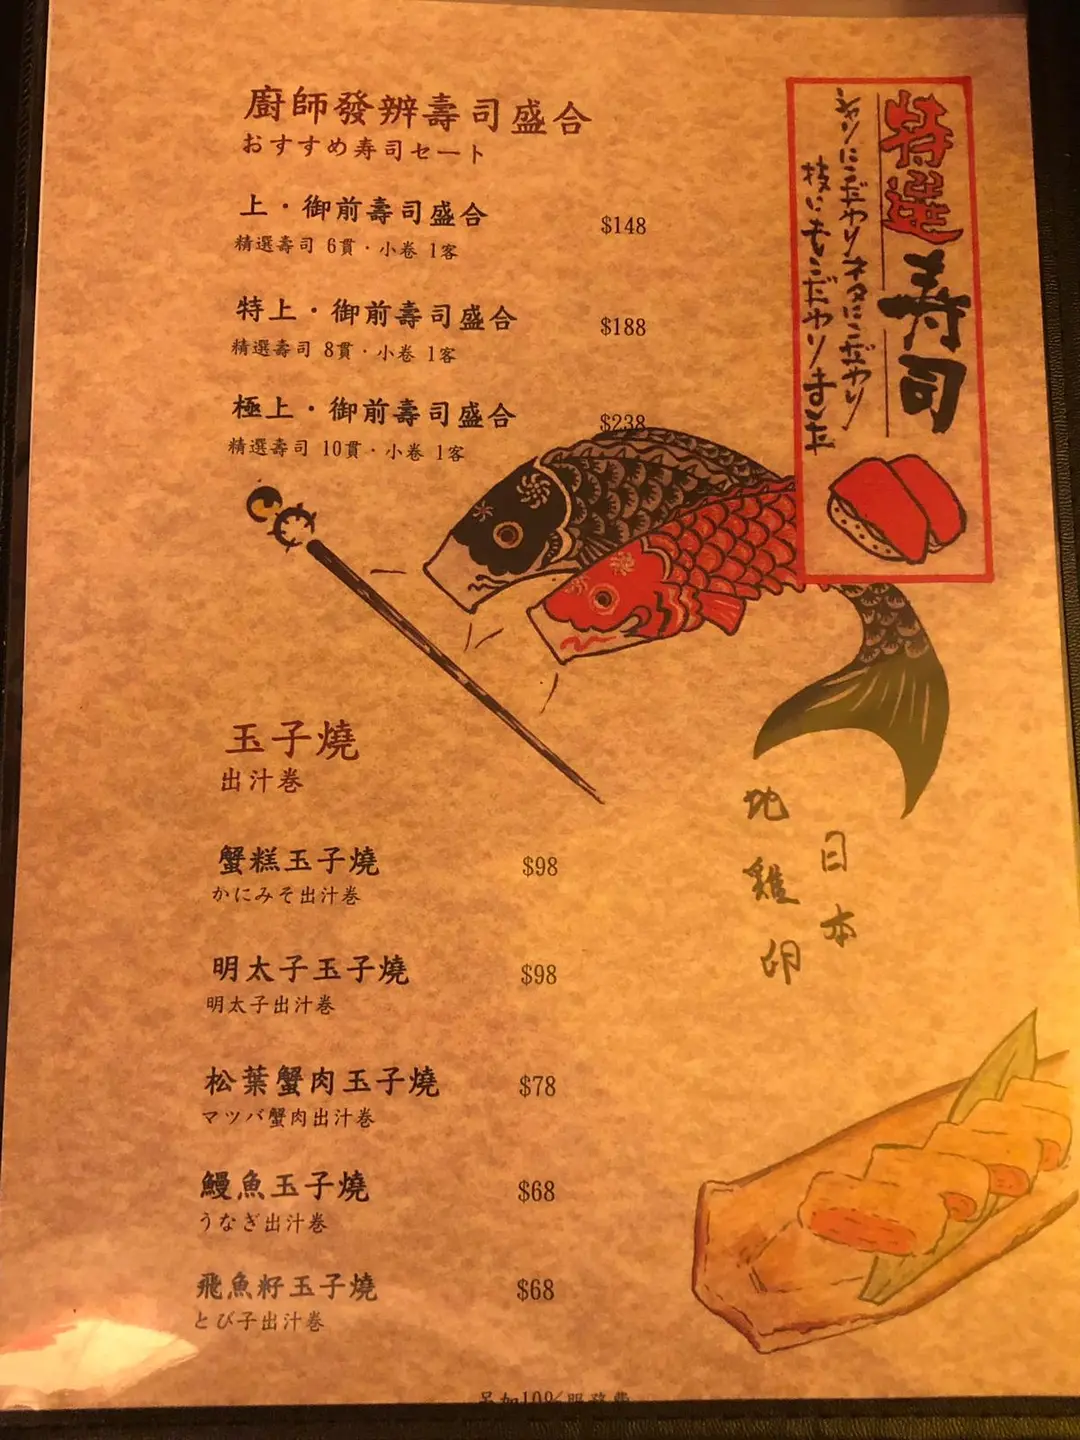 廚師發辦壽司盛合
おすすめ寿司セート
上・御前壽司盛合 $148
精選壽司 6貫・小卷 1客
特上・御前壽司盛合 $188
精選壽司 8貫・小卷 1客
極上・御前壽司盛合 $238
精選壽司 10貫・小卷 1客
特選寿司
シャリにこだわりネタにこだわり
技にもこだわりました
玉子燒
出汁巻
蟹糕玉子燒 $98
かにみそ出汁巻
明太子玉子燒 $98
明太子出汁巻
松葉蟹肉玉子燒 $78
マツバ蟹肉出汁巻
鰻魚玉子燒 $68
うなぎ出汁巻
飛魚籽玉子燒 $68
とび子出汁巻
日本
地雞卵
另加10%服務費